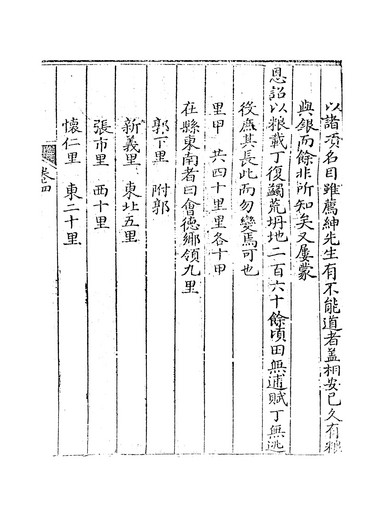 以諸項名目雖薦紳先生有不能道者盖相安已久有粮
與銀而餘非所知矣又屢蒙
恩詔以粮載丁復蠲荒坍地二百六十餘頃田無逋賦丁無逃
役庶其長此而勿變焉可也
里甲　共四十里里各十甲
在縣東南者曰會德鄉領九里
郭下里　附郭
新義里　東北五里
張市里　西十里
懷仁里　東二十里
卷四